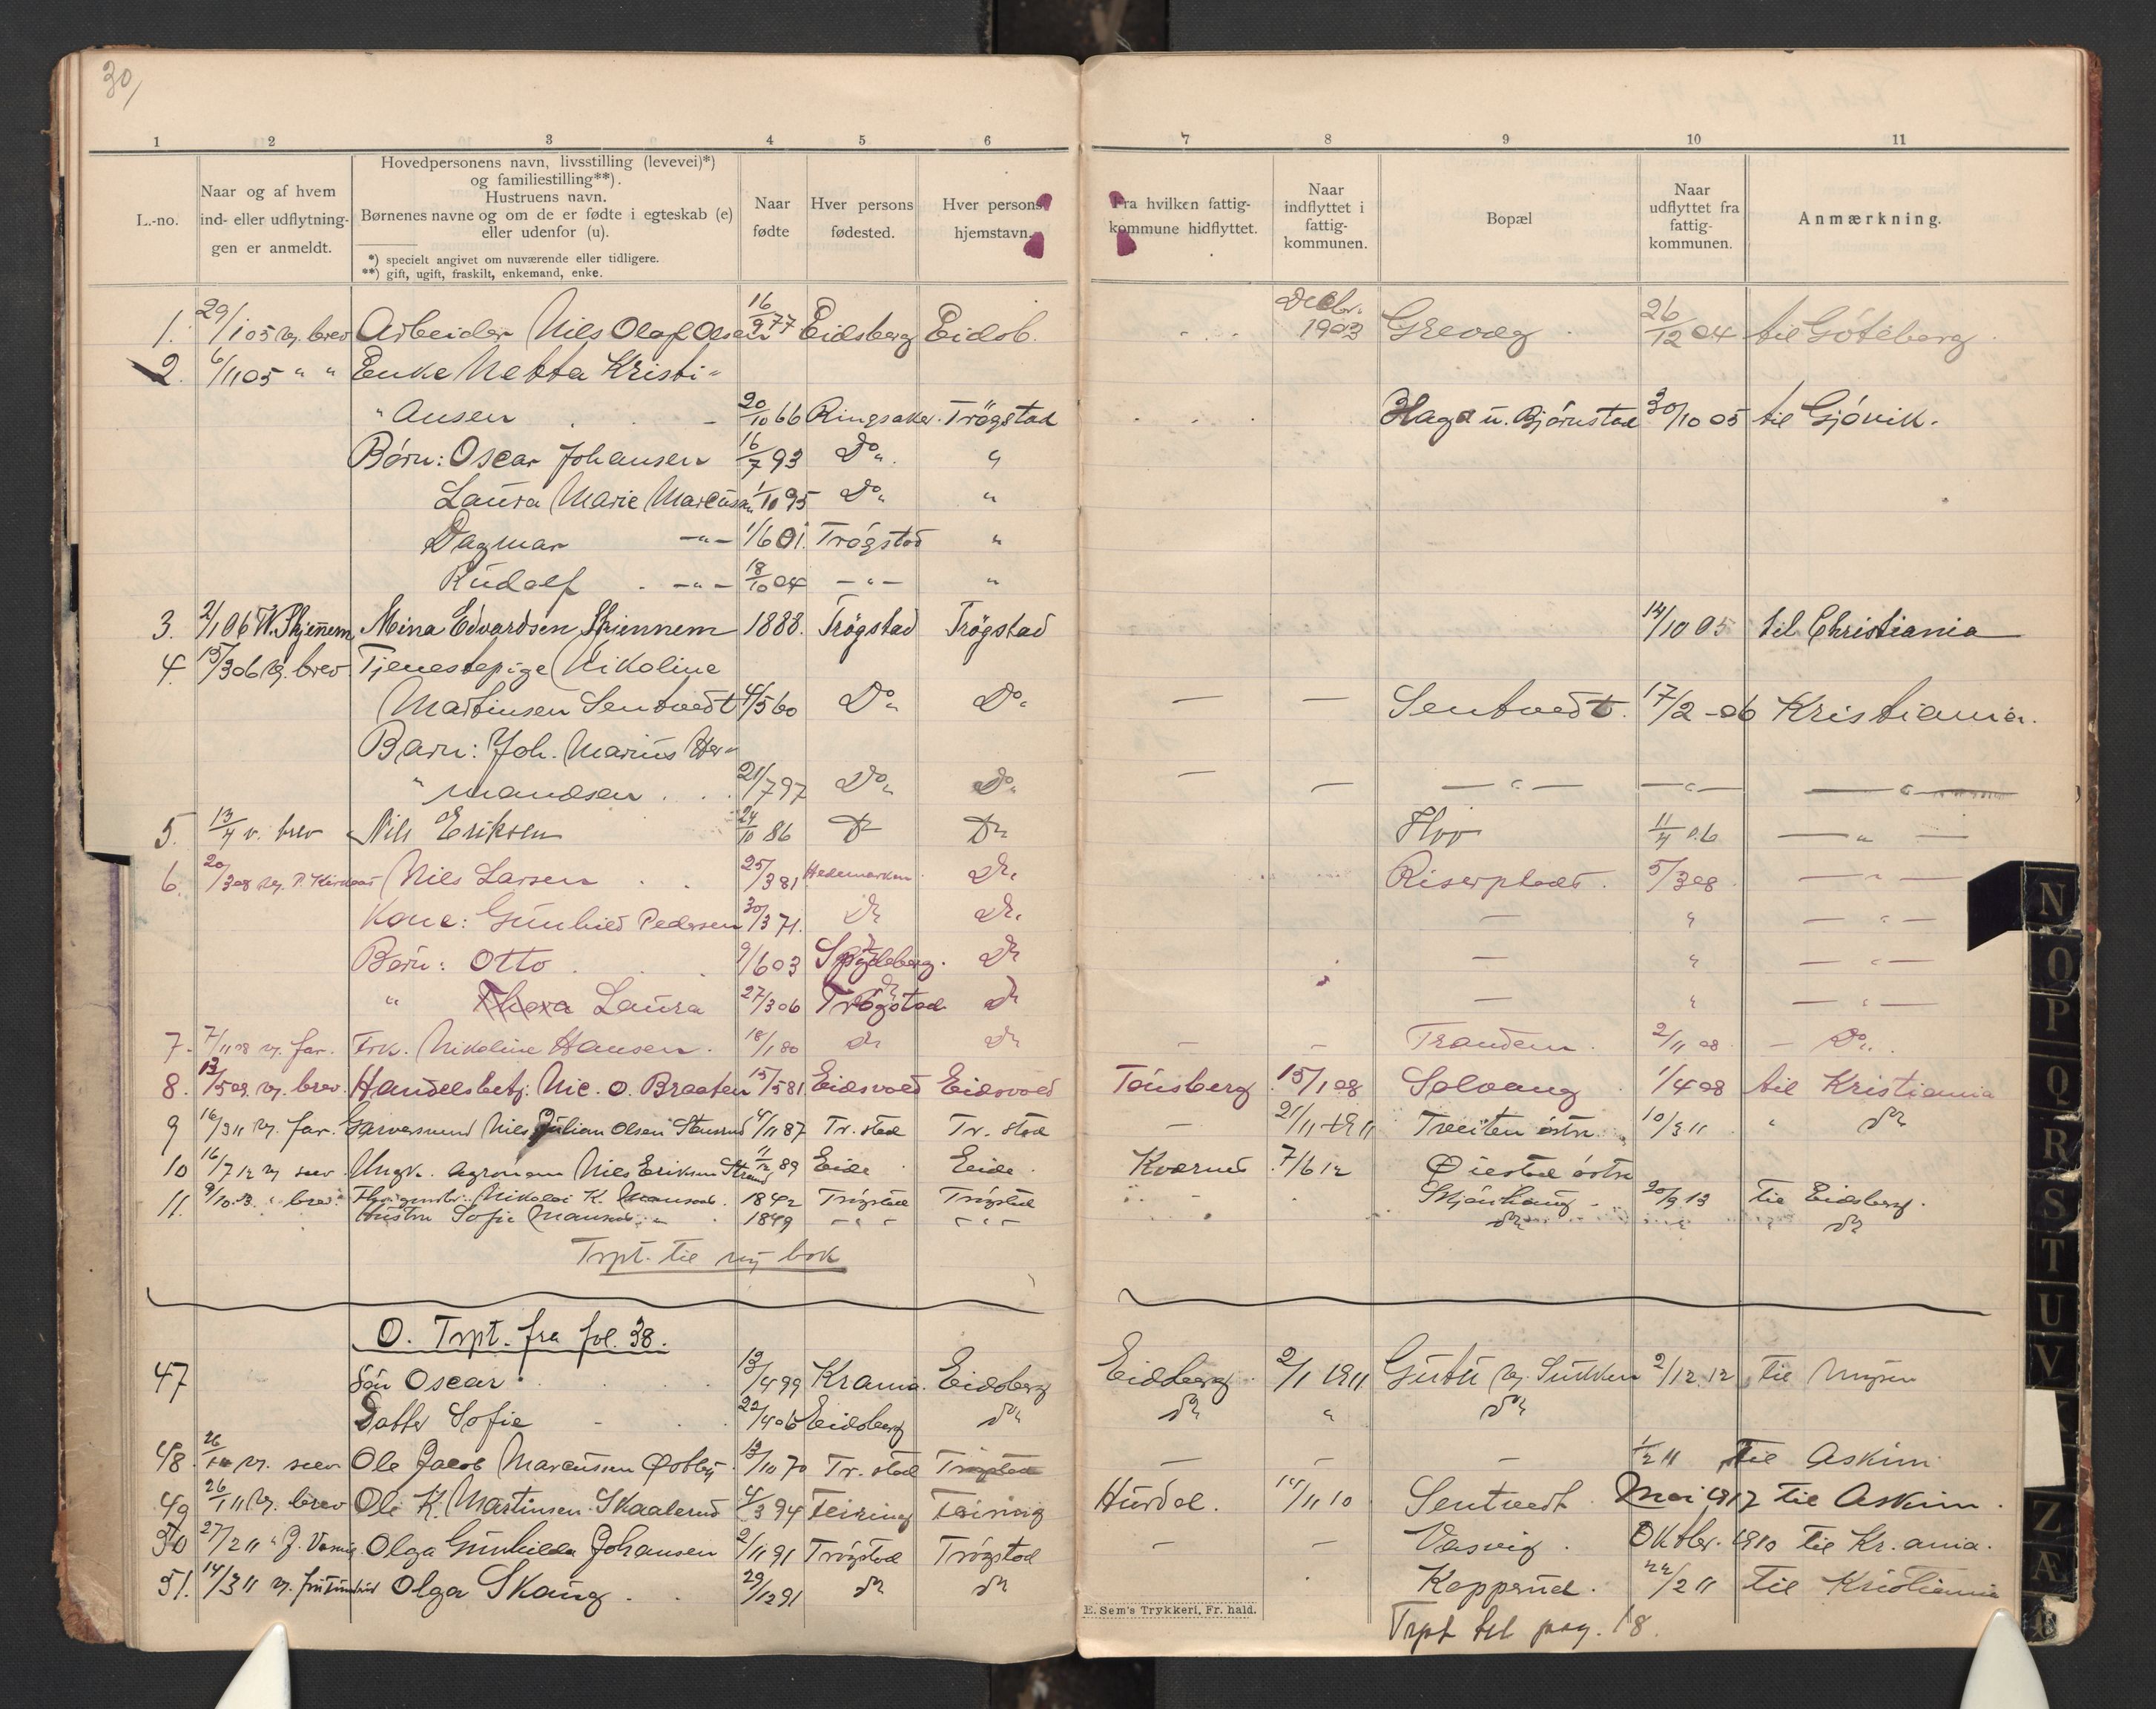 30/
1 2 3 4 5 6 7 8 9 10 11
L.-no.
Naar og af hvem
ind- eller udflytning-
gen er anmeldt.
Hovedpersonens navn, livsstilling (levevei)*)
og familiestilling**).
Hustruens navn.
Børnenes navne og om de er fødte i egteskab (e)
eller udenfor (u).
*) specielt angivet om nuværende eller tidligere.
**) gift, ugift, fraskilt, enkemand, enke.
Naar
fødte
Hver persons
fødested.
Hver persons
hjemstavn.
Fra hvilken fattig-
kommune hidflyttet.
Naar
indflyttet i
fattig-
kommunen.
Bopæl
Naar
udflyttet fra
fattig-
kommunen.
Anmærkning.
1. 29/1 05 v. brev Arbeider Nils Olaf Olsen 16/9 77 Eidsberg Eidsb. Decbr. 1903 Grevæg 26/12 04 til Göteborg
2. 6/11 05 " " Enke Netta Kristi-
"ansen 20/10 66 Ringsaker Trögstad Haga u. Bjørnstad 30/10 05 til Gjövik.
Børn: Oscar Johansen 16/7 93 Do "
Laura Marie Marcussen 1/10 95 Do "
Dagmar -"- 1/6 01. Trögstad "
Rudolf -"- 18/10 04 -"- "
3. 2/1 06 W. Skjennem Mina Edvardsen Skjennem 1888. Trögstad Trögstad 14/10 05 til Christiania
4. 15/3 06 v. brev Tjenestepige Nikoline
Martinsen Sentvedt 4/5 60 Do Do — — Sentvedt. 17/2 -06 Kristiania.
Barn: Joh. Marius Her-
"mandsen 21/7 97 Do Do — — -"- -"- -"-
5. 13/4 v. brev Nils Eriksen 24/10 86 Do Do 11/4 06 -"-
6. 20/3 08 v. Nils Larsen 25/3 81 Hedemarken Do 5/3 08 -"-
Kone: Gunhild Pedersen 30/3 71. Do Do — " -"-
Børn: Otto 9/6 03 Spydeberg. Do — " -"-
" Thora Laura 27/3 06 Trögstad Do — " -"-
7. 7/11 08 v. far. Frk. Nikoline Hansen. 18/1 80 Do Do — — Trandem. 2/11 08 - Do
8. 13/5 08. v. brev. Handelsbetj. Nic. O. Braaten 15/5 81 Eidsvold Eidsvold Tönsberg 15/1 08 Solvang 1/4 08 til Kristiania
9 16/3 11 v. far. Garversvend Nils Julian Olsen 4/11 87 Tr. stad Tr. stad — 21/11 1911 Treiten östre 10/3 11 " Do
10 16/7 12 v. selv Ungk. Agronom Nils Eriksen Strand 11/12 89 Eide Eide. Kværnes 7/6 12 Øiestad östre
11. 9/10 13. " brev Nikolai K. 1842 Trögstad Trögstad Skjönhaug 20/9 13 til Eidsberg.
Hustru Sofie 1849 -"- -"- Do " Do
Trpt. til ny bok
O. Trpt. fra fol. 38.
47 Sön Oscar 13/4 99 Krania. Eidsberg Eidsberg 2/1 1911 Gutu v. Sukken 2/12 12 til Mysen
Datter Sofie 22/4 06 Eidsberg Do Do " Do
48. v. selv Ole Jacob Marcussen Østby 13/10 70 Tr. stad Trögstad — — — 1/2 11 til Askim
49 26/1 11 v. brev Ole K. Martinsen Skaalerud 4/3 94 Feiring Feiring Hurdal. 14/11 10 Sentvedt Mai 1912 til Askim.
50 27/2 11 " J. Olga Gunhilda Johansen 2/11 91 Trögstad Trögstad — — Vasvig. Oktbr. 1910 til Kr.ania.
51. 14/3 11 v. Olga Skaug 29/12 91 Do Do Kopperud. 22/2 11 til Kristiania
E. Sem's Trykkeri, Fr. hald.
Trpt til pag. 18.
N
O
P
Q
R
S
T
U
V
Z
Æ